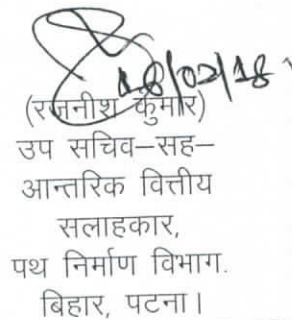 08/02/18
(रजनीश कुमार)
उप सचिव–सह–
आन्तरिक वित्तीय
सलाहकार,
पथ निर्माण विभाग.
बिहार, पटना।